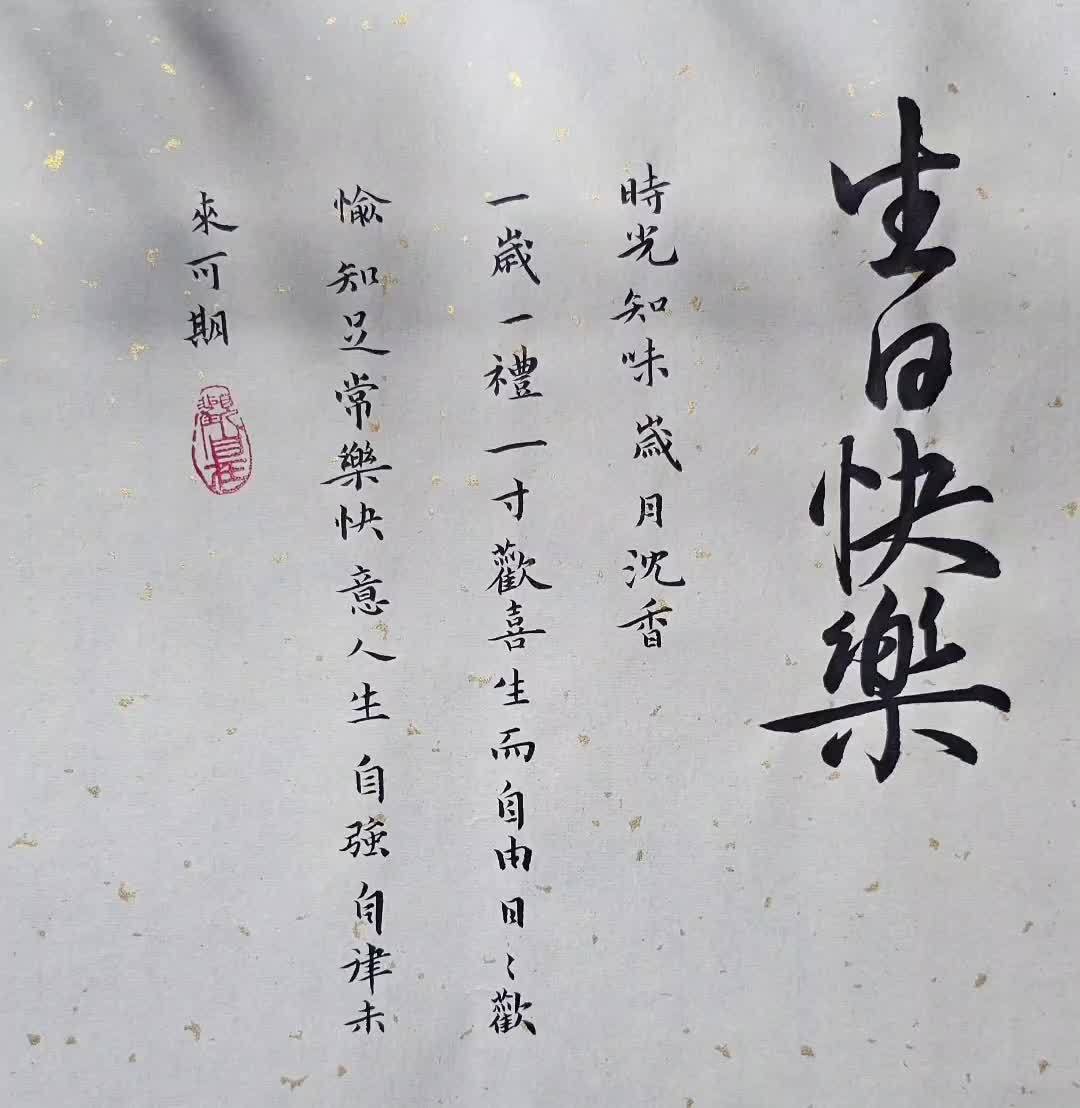 生日快樂
時光知味歲月沈香
一歲一禮一寸歡喜生而自由日〻歡
愉知足常樂快意人生自強自律未
來可期
觀自在